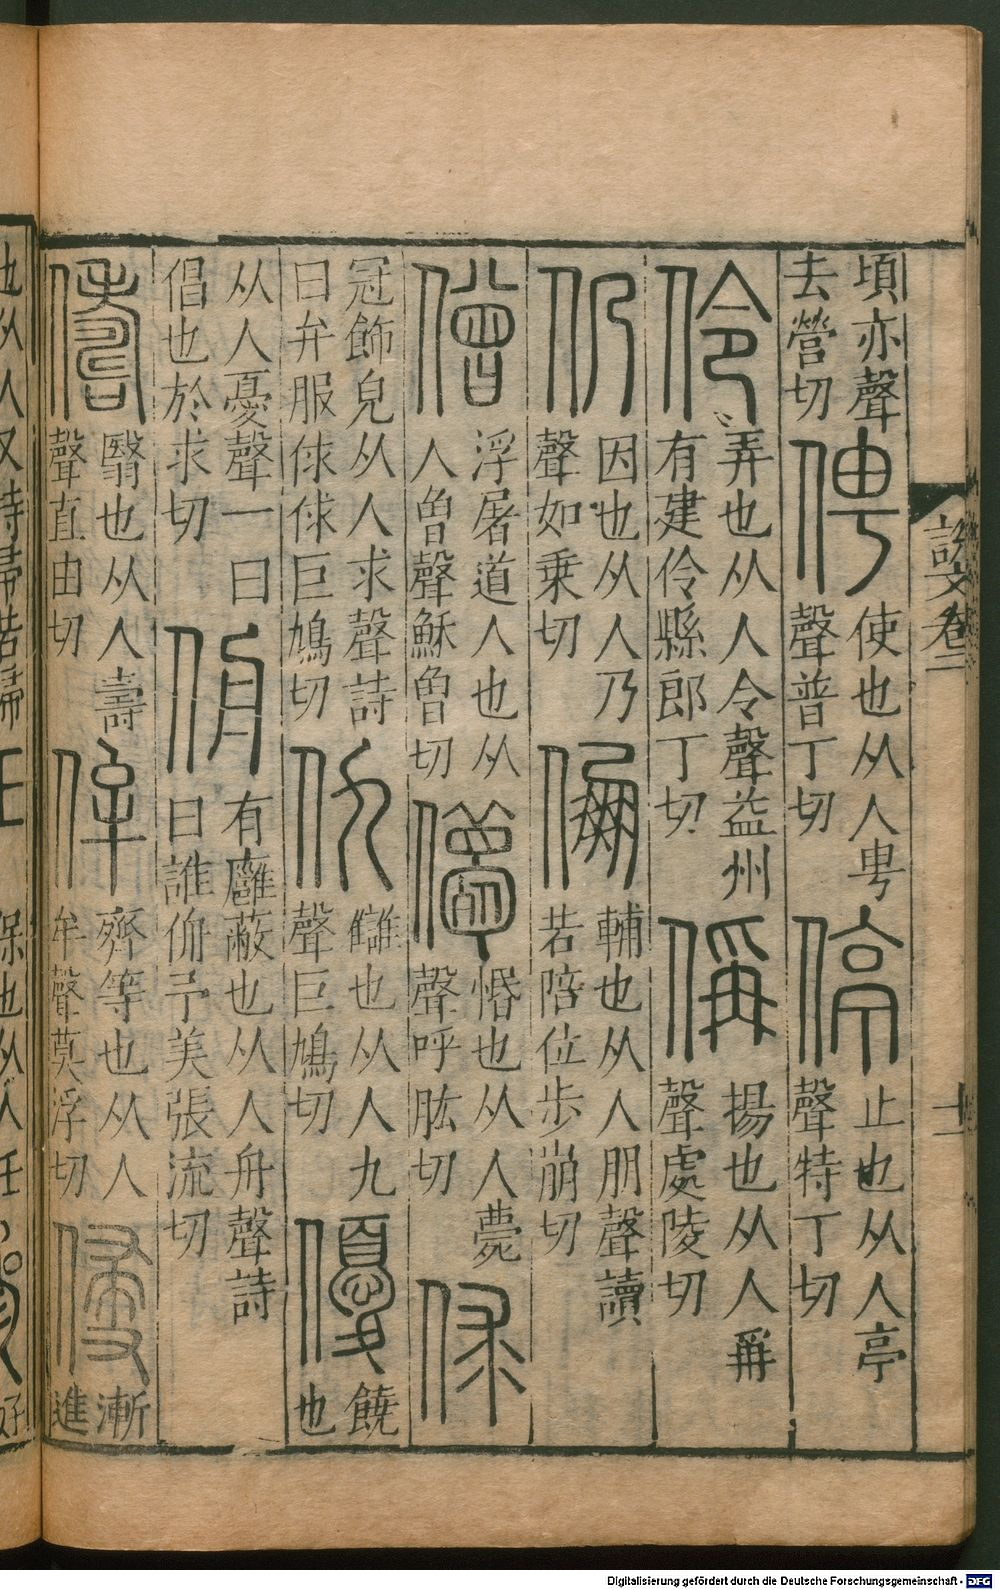 頃亦聲
去營切
俜
使也从人甹
聲普丁切
停
止也从人亭
聲特丁切
伶
弄也从人令聲益州
有建伶縣郎丁切
偁
揚也从人爯
聲處陵切
仍
因也从人乃
聲如乗切
倗
輔也从人朋聲讀
若陪位步崩切
僧
浮屠道人也从
人曾聲穌曾切
儚
惽也从人薨
聲呼肱切
俅
冠飾皃从人求聲詩
曰弁服俅俅巨鳩切
仇
讎也从人九
聲巨鳩切
優
饒
也
从人憂聲一曰
倡也於求切
侜
有廱蔽也从人舟聲詩
曰誰侜予美張流切
儔
翳也从人壽
聲直由切
侔
齊等也从人
牟聲莫浮切
侵
漸
進
說文卷二
十一
Digitalisierung gefördert durch die Deutsche Forschungsgemeinschaft - DFG